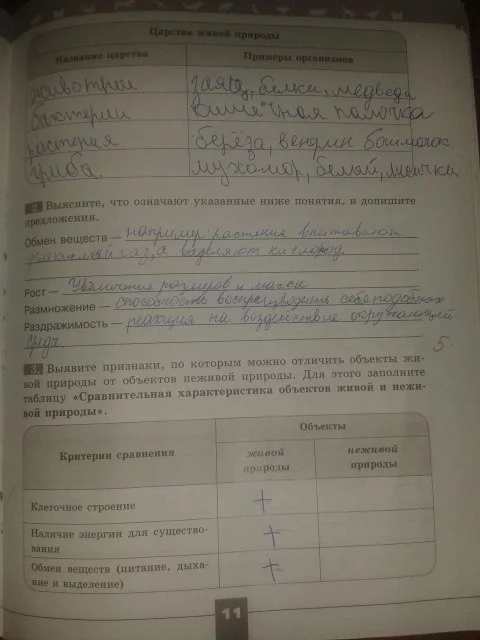 Царства живой природы
Название царства Примеры организмов
животные заяц, белки, медведь
бактерии кишечная палочка
растения берёза, венерин башмачок
грибы мухомор, белый, лисички
2 Выясните, что означают указанные ниже понятия, и допишите
предложения.
Обмен веществ — например: растения впитывают
углекислый газ, а выделяют кислород
Рост — Увеличение размеров и массы
Размножение — способность воспроизводить себе подобных
Раздражимость — реакция на воздействие окружающей
среды
5
3 Выявите признаки, по которым можно отличить объекты жи-
вой природы от объектов неживой природы. Для этого заполните
таблицу «Сравнительная характеристика объектов живой и нежи-
вой природы».
Критерии сравнения Объекты
живой природы неживой природы
Клеточное строение +
Наличие энергии для существо-
вания +
Обмен веществ (питание, дыха-
ние и выделение) +
11